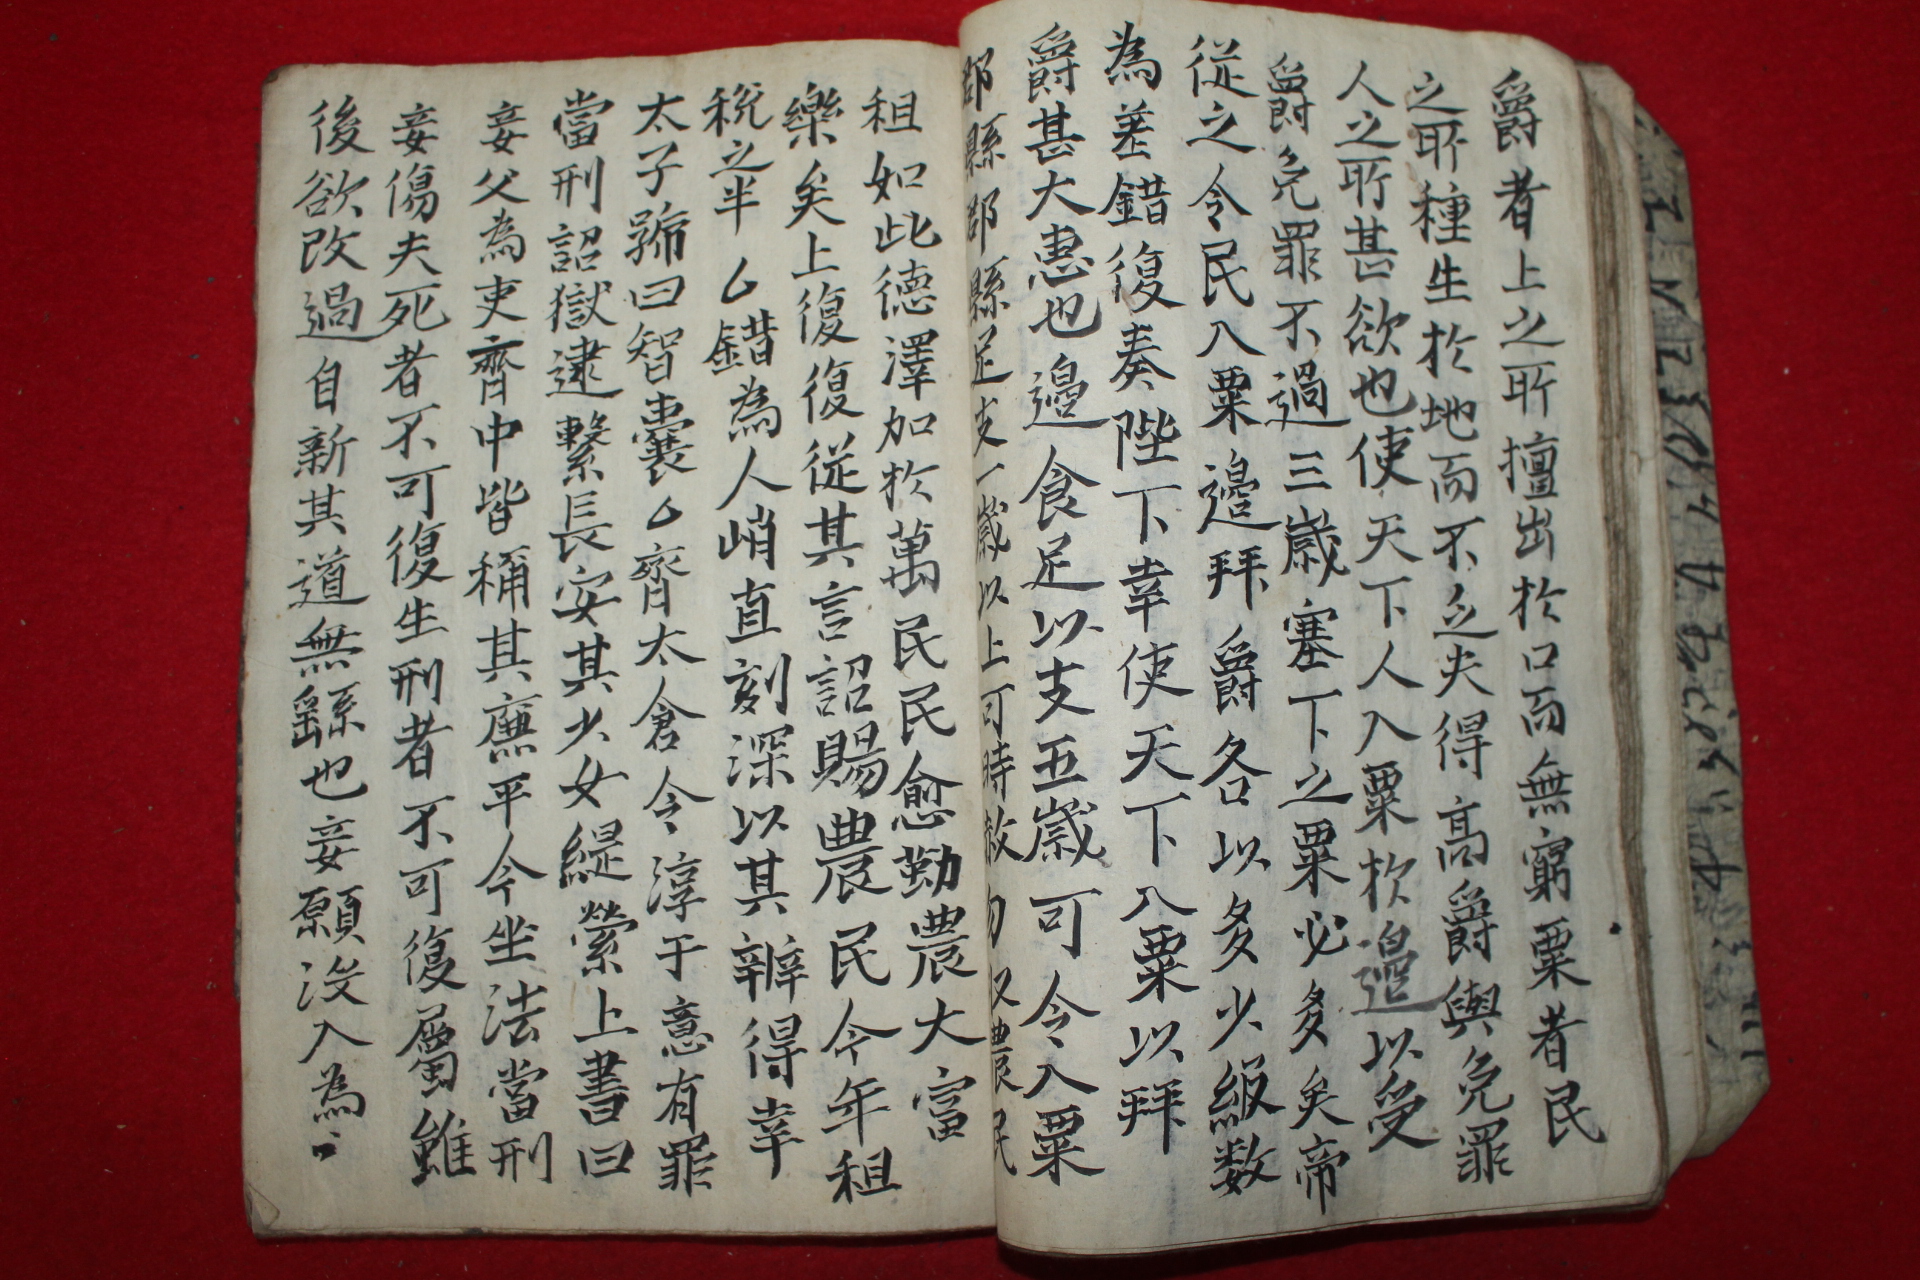 爵者上之所擅出於口而無窮粟者民
之所種生於地而不乏夫得高爵與免罪
人之所甚欲也使天下人入粟於邉以受
爵免罪不過三歲塞下之粟必多矣帝
從之令民入粟邉拜爵各以多少級数
為差錯復奏陛下幸使天下入粟以拜
爵甚大惠也邉食足以支五歲可令入粟
郡縣郡縣足支一歲以上可時赦勿収農民
租如此德澤加於萬民民愈勤農大富
樂矣上復復從其言詔賜農民今年租
稅之半乙錯為人峭直刻深以其辨得幸
太子號曰智囊乙齊太倉令淳于意有罪
當刑詔獄逮繫長安其少女緹縈上書曰
妾父為吏齊中皆稱其廉平今坐法當刑
妾傷夫死者不可復生刑者不可復屬雖
後欲改過自新其道無繇也妾願沒入為